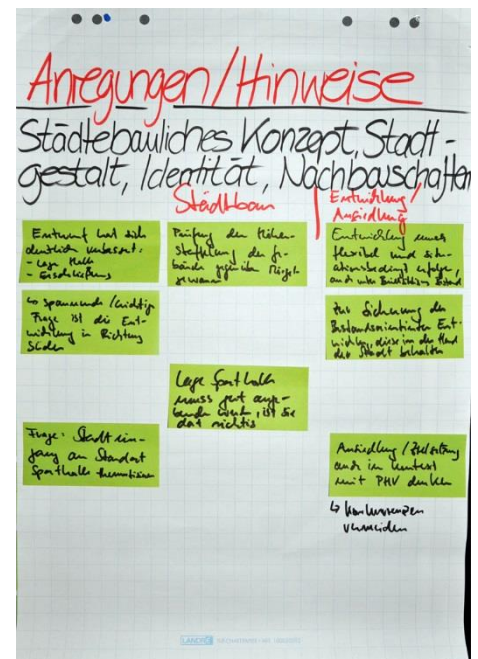 Anregungen/Hinweise
Städtebauliches Konzept, Stadt-
gestalt, Identität, Nachbarschaften
Städtbau
Entwicklung/
Ansiedlung
Entwurf hat sich
deutlich verbessert:
- Lage Halle
- Erschließung
↳ spannende / wichtige
Frage ist die Ent-
wicklung in Richtung
Süden
Frage: Stadtein-
gang am Standort
Sporthalle thematisieren
Prüfung der Höhen-
staffelung der Ge-
bäude gegenüber
Lage Sporthalle
muss gut
werden, ist sie
dort richtig
Entwicklung muss
flexibel und situ-
ationsbedingt erfolgen,
auch
Zur Sicherung der
Bestandsorientierten Ent-
wicklung, diese in der Hand
der Stadt behalten
Ansiedlung / Zielsetzung
auch im Kontext
mit PHV denken
↳ Konkurrenzen
vermeiden